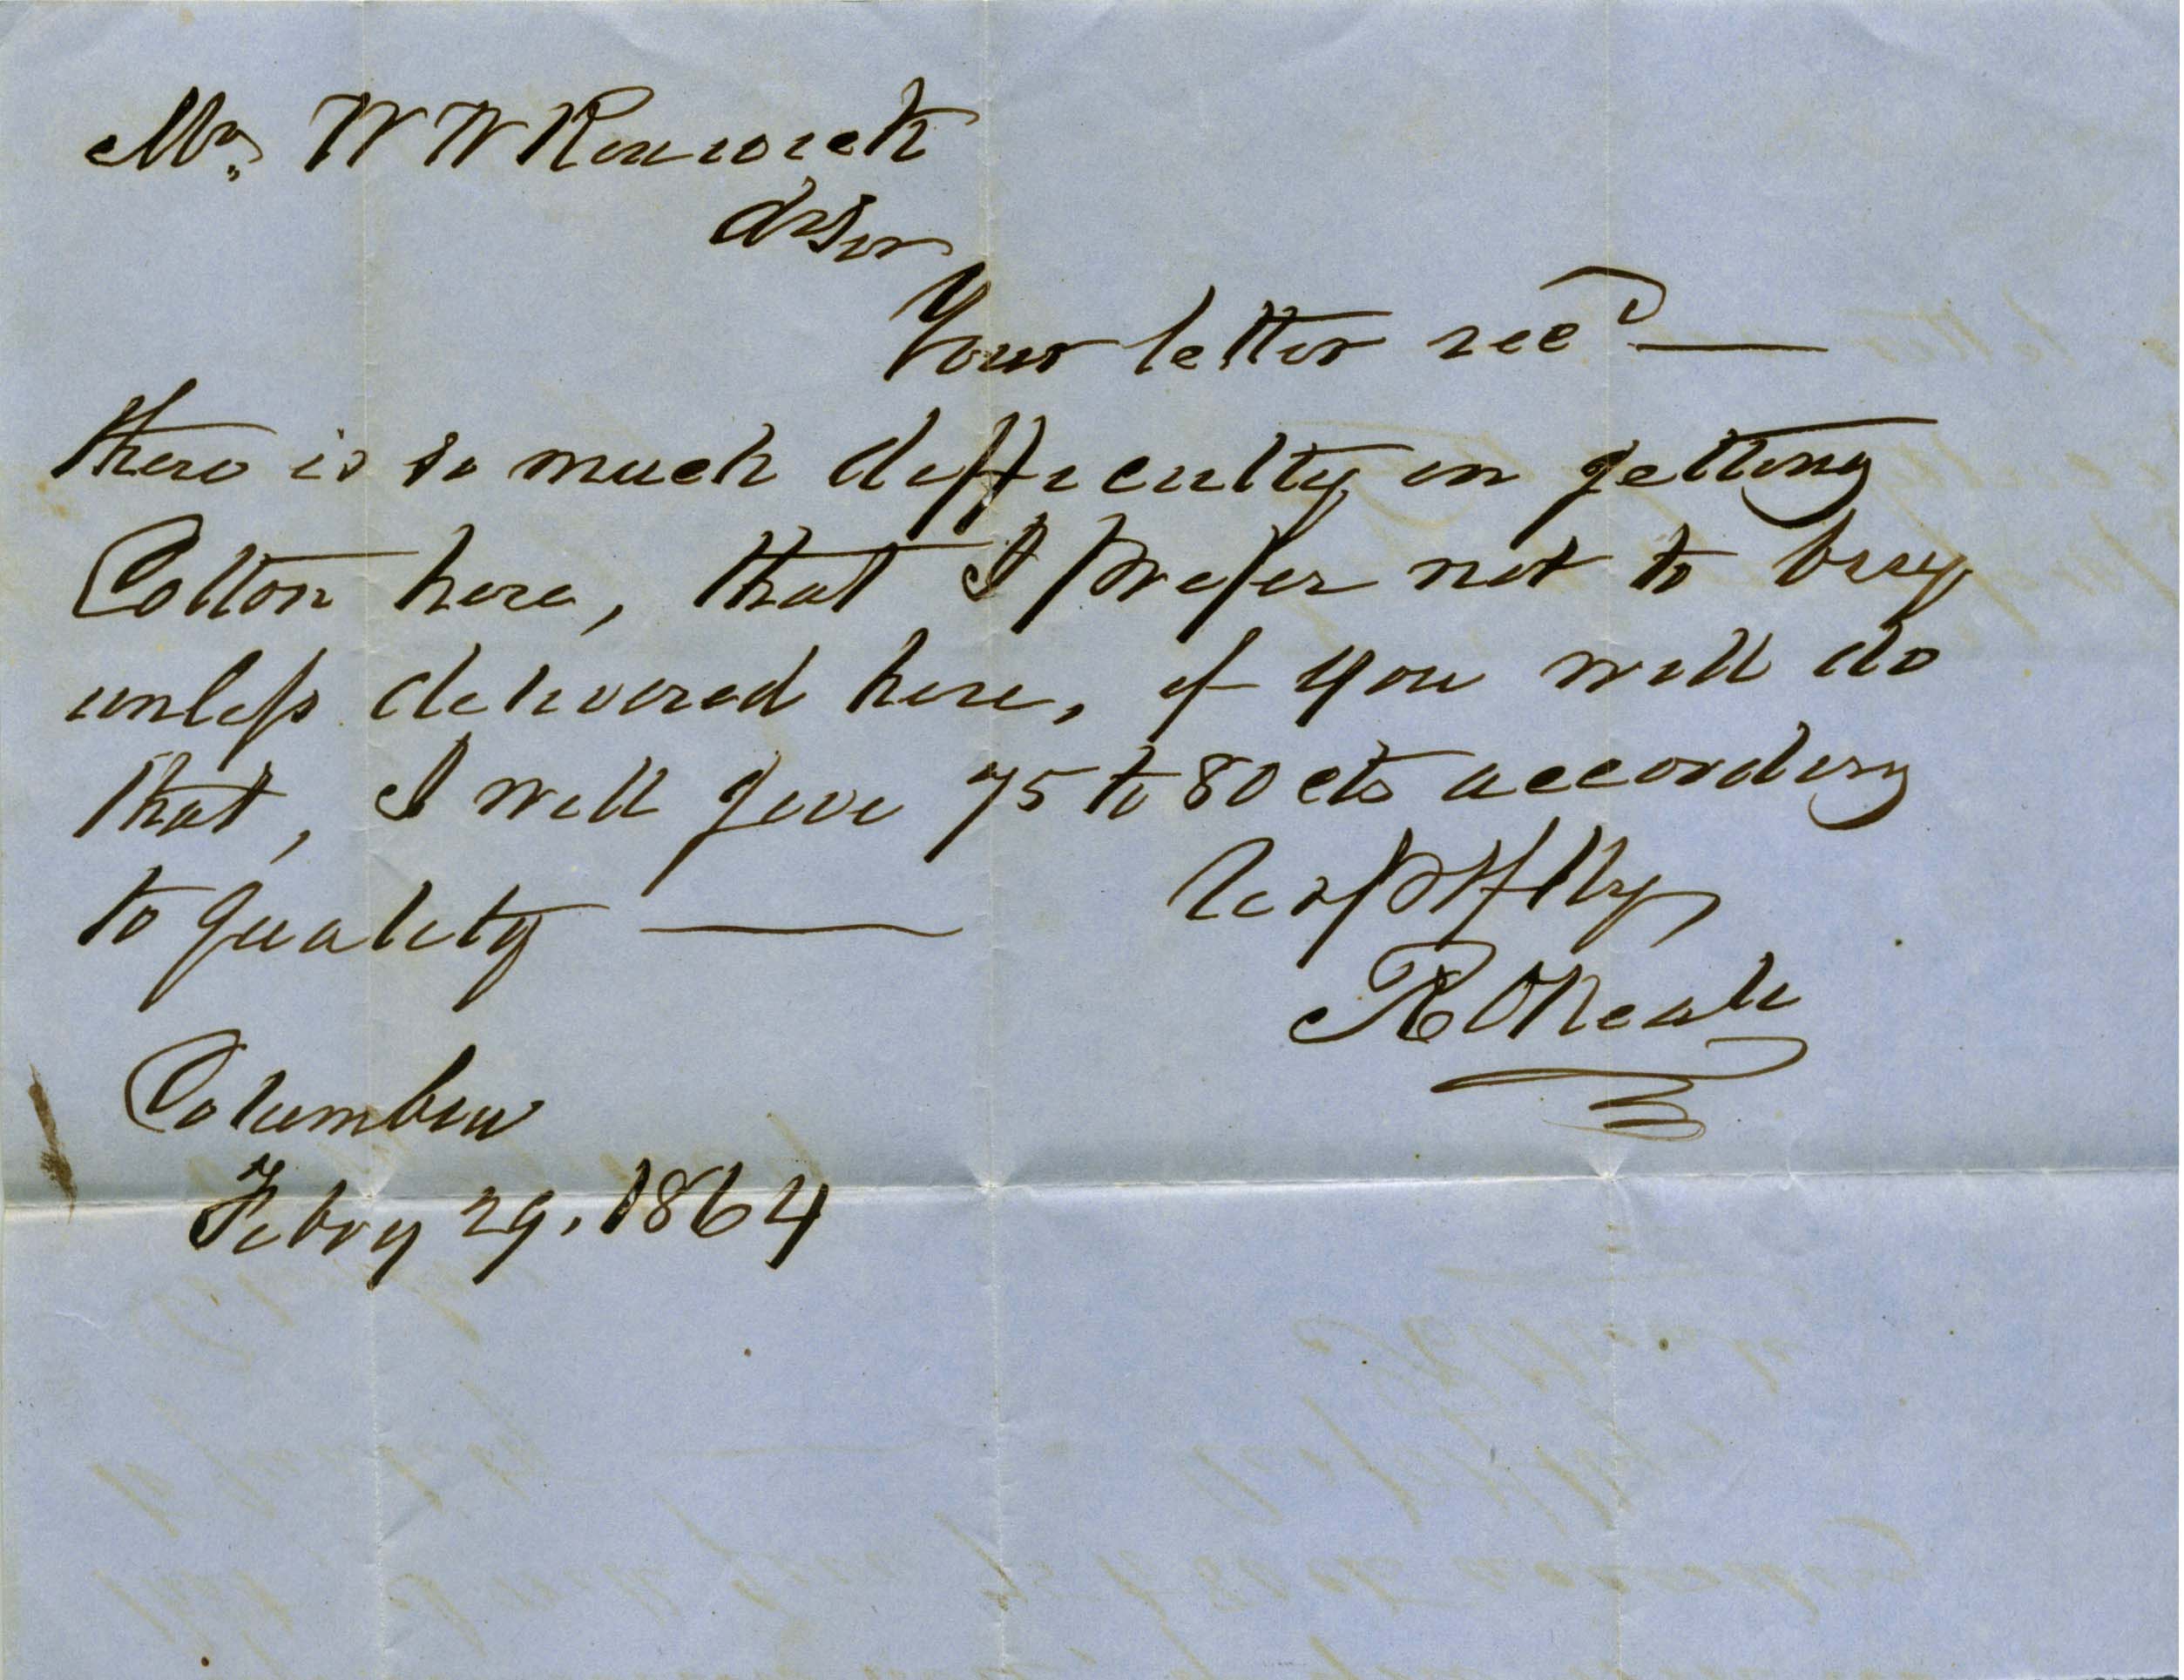 Mr. W W Renwick
dr Sir
Your letter recd —
there is so much difficulty in getting
Cotton here, that I prefer not to buy
unless delivered here, if you will do
that, I will give 75 to 80 cts according
to quality —
Respectflly
R ONeale
Columbia
Febry 29. 1864